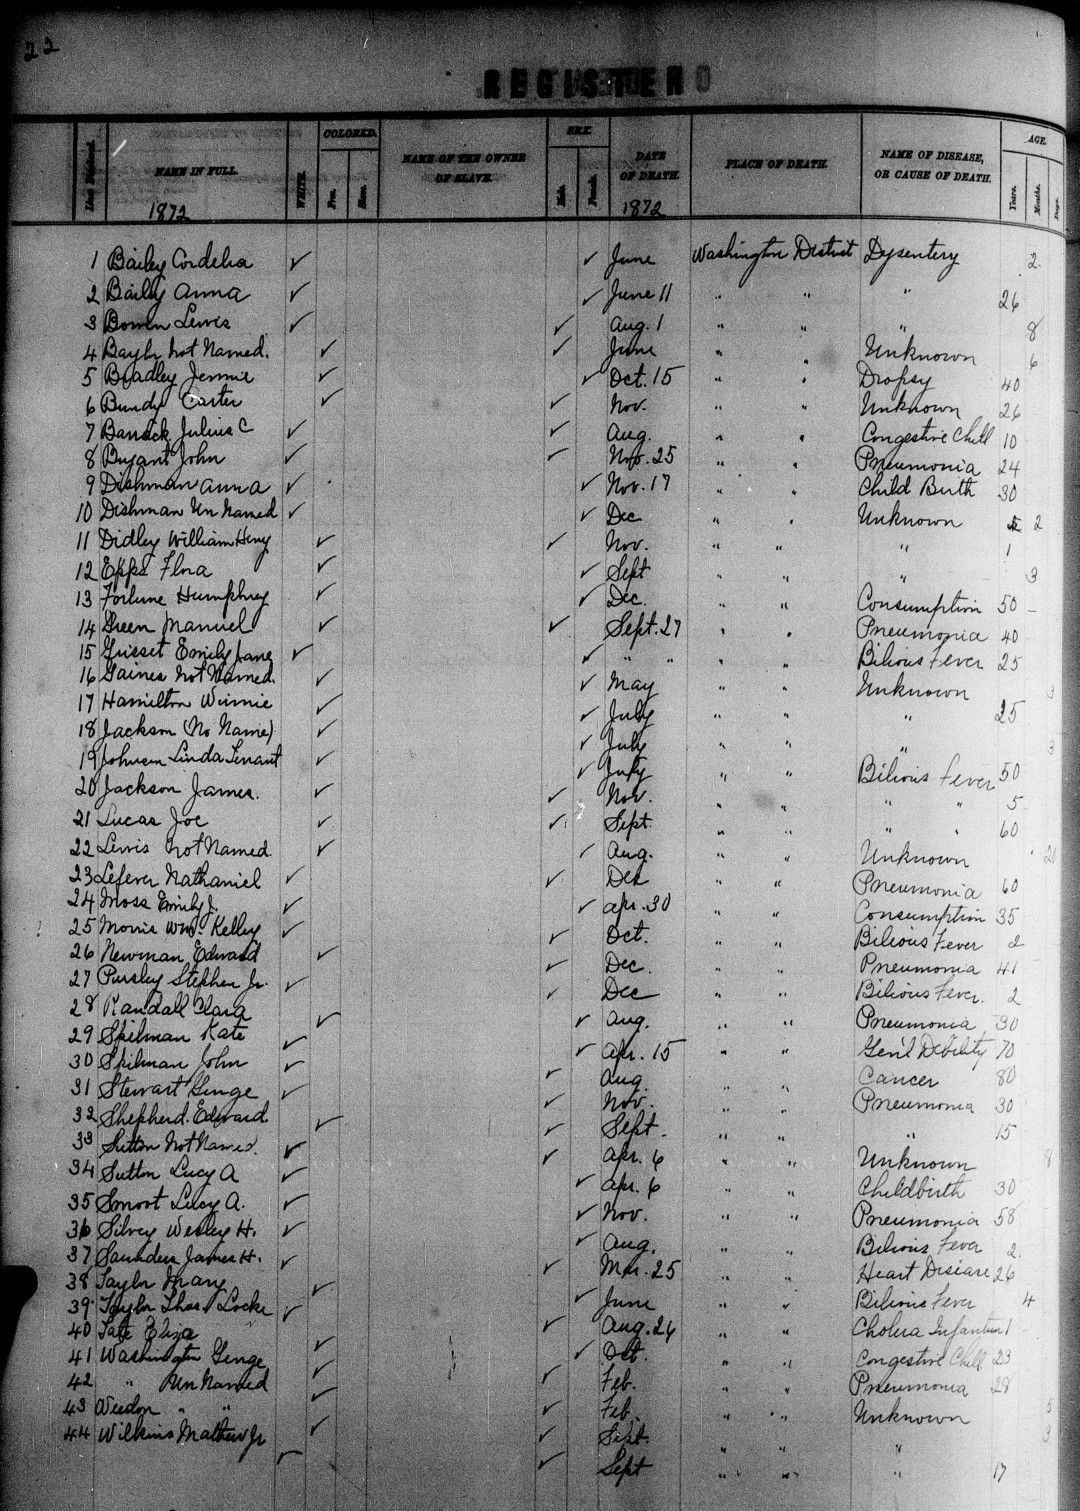 22
REGISTER
Line Numbered. NAME IN FULL. WHITE. COLORED. Free. Slave. NAME OF THE OWNER OF SLAVE. SEX. Male. Female. DATE OF DEATH. PLACE OF DEATH. NAME OF DISEASE, OR CAUSE OF DEATH. AGE. Years. Months. Days.
1872 1872
1 Bailey Cordelia ✓ ✓ June Washington District Dysentery 2
2 Baily Anna ✓ ✓ June 11 " " " 26
3 Bowen Lewis ✓ ✓ Aug. 1 " " " 8
4 Baylor Not Named. ✓ ✓ June " " Unknown 6
5 Bradley Jennie ✓ ✓ Oct. 15 " " Dropsy 40
6 Bundy Carter ✓ ✓ Nov. " " Unknown 26
7 Julius C ✓ ✓ Aug. " " Congestive Chill 10
8 Bryant John ✓ ✓ Nov. 25 " " Pneumonia 24
9 Dishman Anna ✓ ✓ Nov. 17 " " Child Birth 30
10 Dishman Un Named ✓ ✓ Dec " " Unknown 2
11 Didley William Henry ✓ ✓ Nov. " " " 1
12 Epps Flora ✓ ✓ Sept " " " 3
13 Fortune Humphrey ✓ ✓ Dec. " " Consumption 50
14 Green Manuel ✓ ✓ Sept. 27 " " Pneumonia 40
15 Grisset Emily Jane ✓ ✓ " " " " Bilious Fever 25
16 Gaines Not Named. ✓ ✓ May " " Unknown 3
17 Hamilton Winnie ✓ ✓ July " " " 25
18 Jackson (No Name) ✓ ✓ July " " " 3
19 Johnson Linda Tenant ✓ ✓ July " " Bilious Fever 50
20 Jackson James. ✓ ✓ Nov. " " " " 5
21 Lucas Joe ✓ ✓ Sept. " " " " 60
22 Lewis Not Named. ✓ ✓ Aug. " " Unknown 20
23 Lefever Nathaniel ✓ ✓ Dec " " Pneumonia 60
24 Moss Emily J. ✓ ✓ Apr. 30 " " Consumption 35
25 Morris Wm. Kelley ✓ ✓ Oct. " " Bilious Fever 2
26 Newman Edward ✓ ✓ Dec. " " Pneumonia 41
27 Pursley Stephen Jr. ✓ ✓ Dec " " Bilious Fever. 2
28 Randall Clara ✓ ✓ Aug. " " Pneumonia 30
29 Spilman Kate ✓ ✓ Apr. 15 " " Gen'l Debility 70
30 Spilman John ✓ ✓ Aug. " " Cancer 80
31 Stewart George ✓ ✓ Nov. " " Pneumonia 30
32 Shepherd. Edward. ✓ ✓ Sept. " " " 15
33 Sutton Not Named. ✓ ✓ Apr. 6 " " Unknown 8
34 Sutton Lucy A ✓ ✓ Apr. 6 " " Childbirth 30
35 Smoot Lucy A. ✓ ✓ Nov. " " Pneumonia 58
36 Silvey Wesley H. ✓ ✓ Aug. " " Bilious Fever 2
37 Saunders James H. ✓ ✓ Mar. 25 " " Heart Disease 26
38 Taylor Mary ✓ ✓ June " " Bilious Fever 4
39 Taylor Thos. Locke ✓ ✓ Aug. 26 " " Cholera Infantum 1
40 Tate Eliza ✓ ✓ Oct. " " Congestive Chill 23
41 Washington George ✓ ✓ Feb. " " Pneumonia 28
42 " Un Named ✓ ✓ Feb. " " Unknown 5
43 Weedon " " ✓ ✓ Sept. " " " 3
44 Wilkins Mathew Jr ✓ ✓ Sept " " " 17